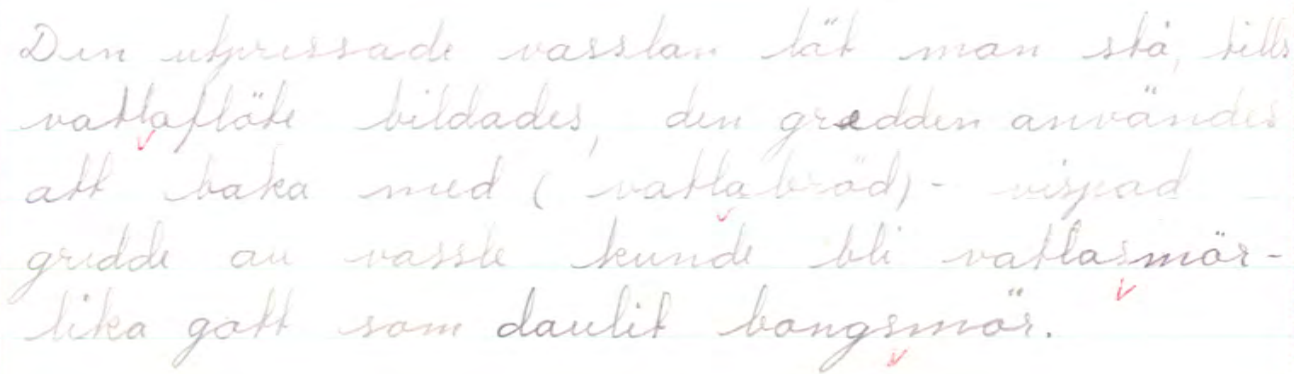 Den utpressade vasslan lät man stå, tills
vatlaflöte bildades, den grädden användes
att baka med (vatlabröd) - vispad
grädde av vassle kunde bli vatlasmör-
lika gott som daulit bongsmör.